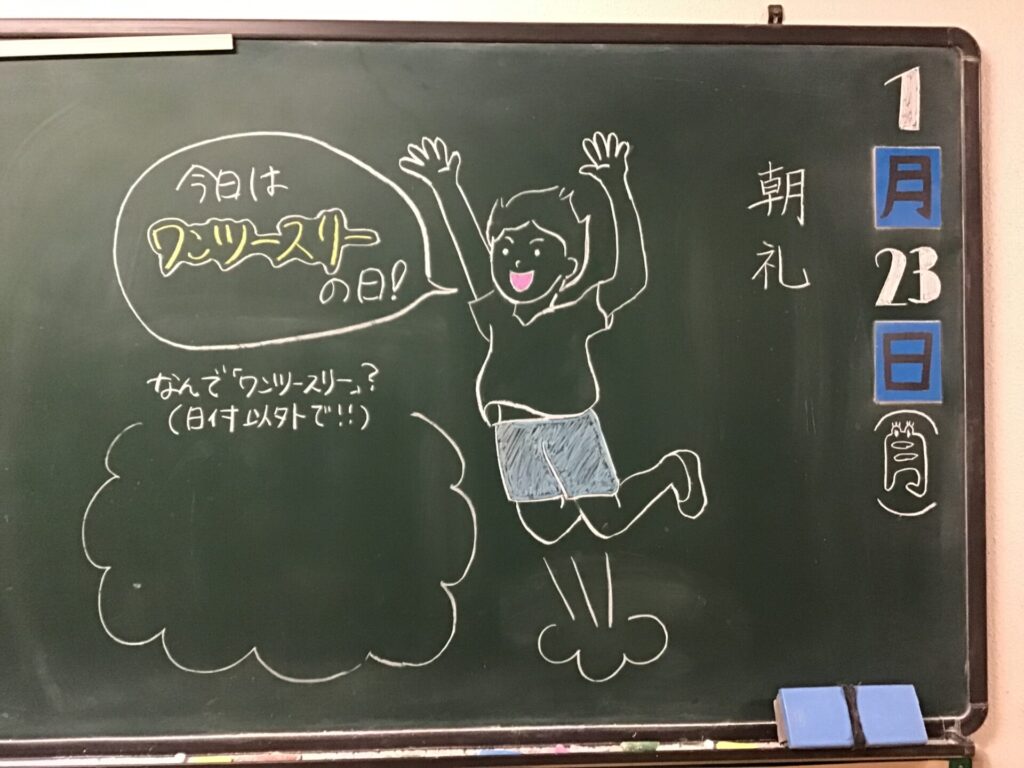 1
月
23
日
(月)
朝礼
今日は
ワンツースリー
の日!
なんで「ワンツースリー」?
(日付以外で!!)